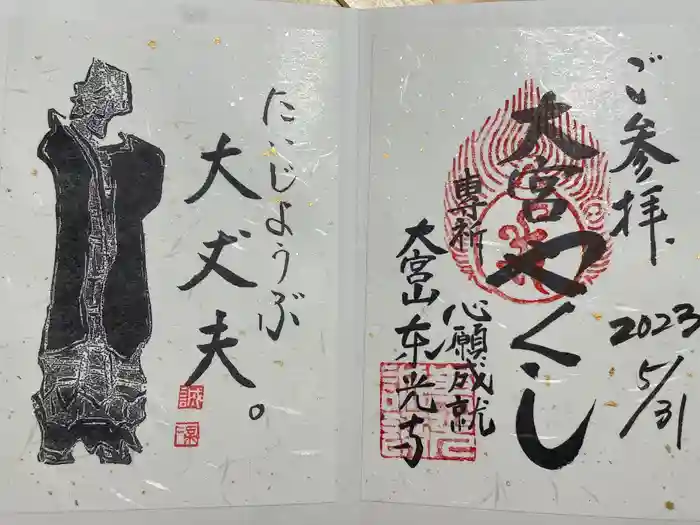 ご参拝
2023
5/31
大宮やくし
専祈
心願成就
大宮山东光寺
だいじょうぶ
大丈夫。